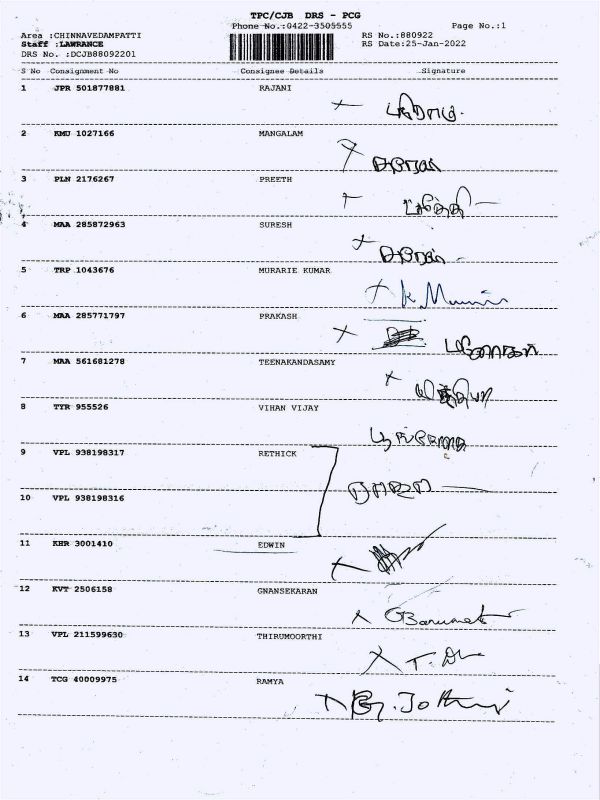 TPC/CJB DRS - PCG
Phone No.:0422-3505555 Page No.:1
Area :CHINNAVEDAMPATTI RS No.:880922
Staff :LAWRANCE RS Date:25-Jan-2022
DRS No. :DCJB88092201
S No Consignment No Consignee Details Signature
1 JPR 501877881 RAJANI
2 KMU 1027166 MANGALAM
3 PLN 2176267 PREETH
4 MAA 285872963 SURESH
5 TRP 1043676 MURARIE KUMAR
6 MAA 285771797 PRAKASH
7 MAA 561681278 TEENAKANDASAMY
8 TYR 955526 VIHAN VIJAY
9 VPL 938198317 RETHICK
10 VPL 938198316
11 KHR 3001410 EDWIN
12 KVT 2506158 GNANSEKARAN
13 VPL 211599630 THIRUMOORTHI
14 TCG 40009975 RAMYA